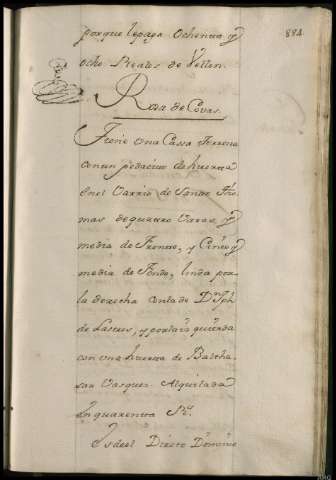 884
porque le paga Ochenta y
ocho Reales de Vellon.
Rosa de Covas.
Tiene una Cassa Terrena
con un pedacito de huerta
en el Varrio de Santo Tho
mas de quatro Varas y
media de Frente, y Cinco y
media de fondo, linda por
la derecha con la de Dn Jph
de Lastres, y por la izquierda
con una huerta de Baltha
sar Vazquez Alquilada
En quarenta Rs.
Es del Directo Dominio